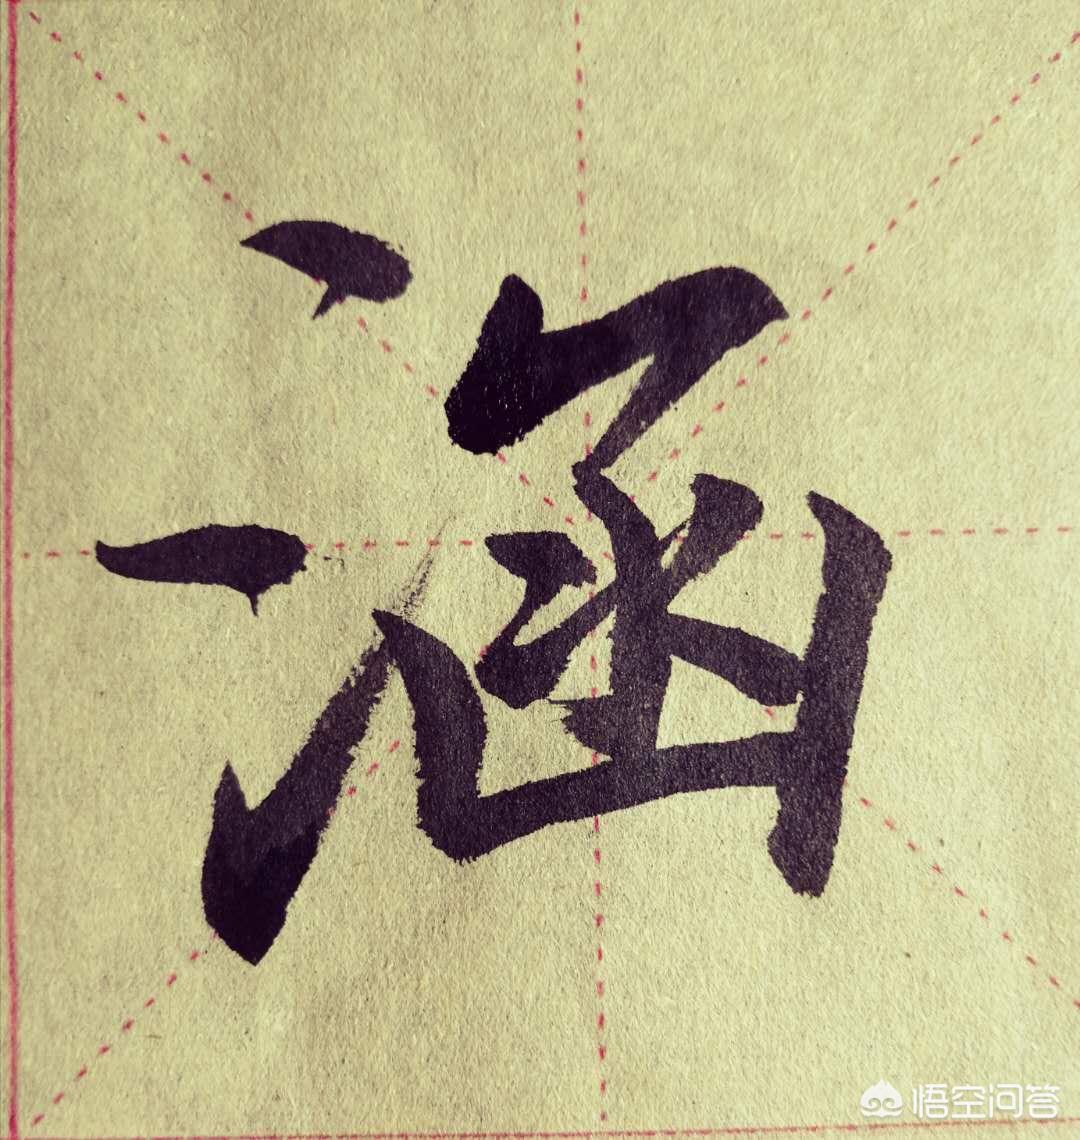 涵
悟空问答